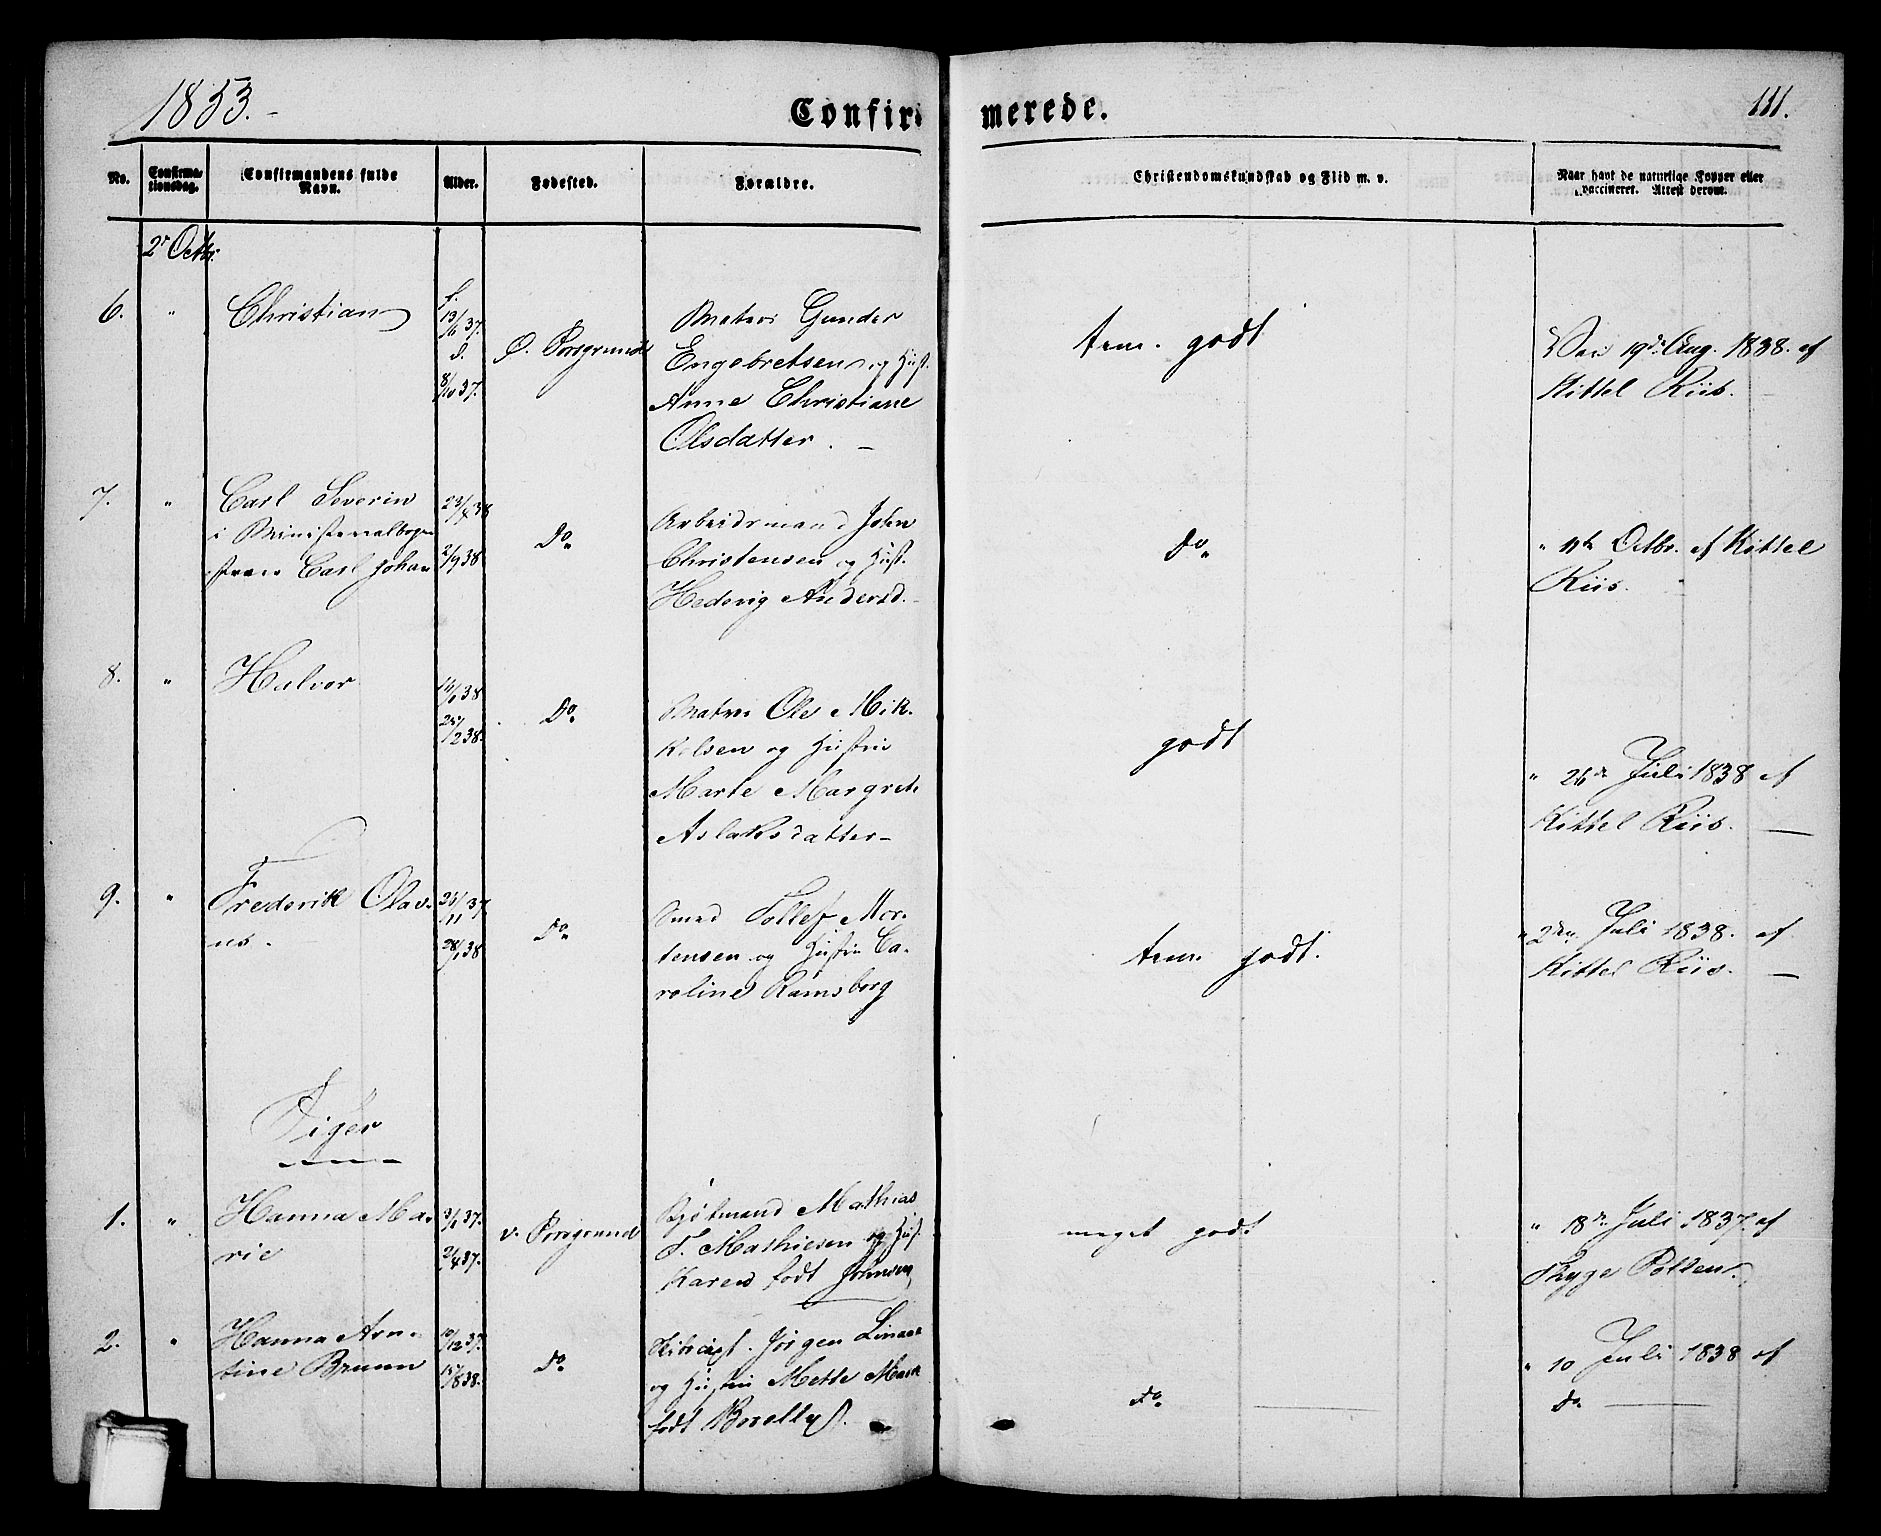 1853.
Confirmerede.
111.
No.
Confirma-
tionsdag.
Confirmandens fulde
Navn.
Alder.
Fødested.
Forældre.
Christendomskundskab og Flid m. v.
Naar havt de naturlige Kopper eller
vaccineret. Attest derom.
2 Octbr.
6. " Christian
f.
13/
37.
d.
8/10 37.
Ø. Porsgrund
Matros Gunder
Engebretsen og Hust.
Anne Christiane
Olsdatter. —
tem. godt
Vac. 19de Aug. 1838. af
Kittel Riis. —
7. " Carl Severin
i Ministerialbogen
Carl Johan
23/4 38
2/9 38.
Do.
Arbeidsmand John
Christensen og Hust.
Hedevig Andersd.
do.
" Octbr. af Kittel
Riis.
8. " Halvor
38
25/2 38.
Do.
Matros Ole Mik-
kelsen og Hustru
Marte Margrete
Aslaksdatter —
godt
" 26de Juli 1838 af
Kittel Riis. —
9. " Frederik Olav-
us.
25/11 37.
28/1 38
Do.
Smed Tollef Mor-
tensen og Hustru Ca-
roline Ramsborg
tem. godt.
" 2den Juli 1838. af
Kittel Riis. —
Piger
1. " Hanna Ma-
rie
3/1 37.
2/4 37.
v. Porsgrund
Mathias
F. Mathiesen og Hust.
Karen født Johnsen
meget godt
" 18de Juli 1837. af
Thyge Poulsen.
2. " Hanna Arn-
tine Bruun
10/12 37.
15/8 38.
Do.
Skibscapt. Jørgen Linaae
og Hustru Mette Marie
født Borelly.
do. —
" 10 Juli 1838 af
do. —